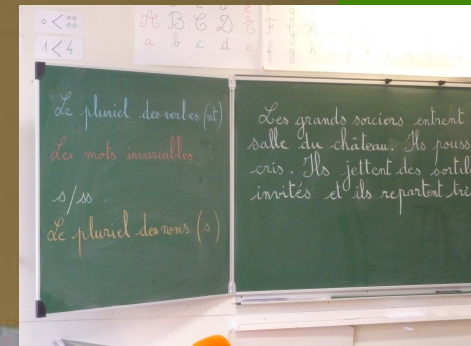 0 <
1 < 4
A B C D E F
a b c d e f g h
Le pluriel des verbes (nt)
Les mots invariables
s/ss
Le pluriel des noms (s)
Les grands sorciers entrent
salle du château. Ils pouss
cris. Ils jettent des sortilè
invités et ils repartent trè